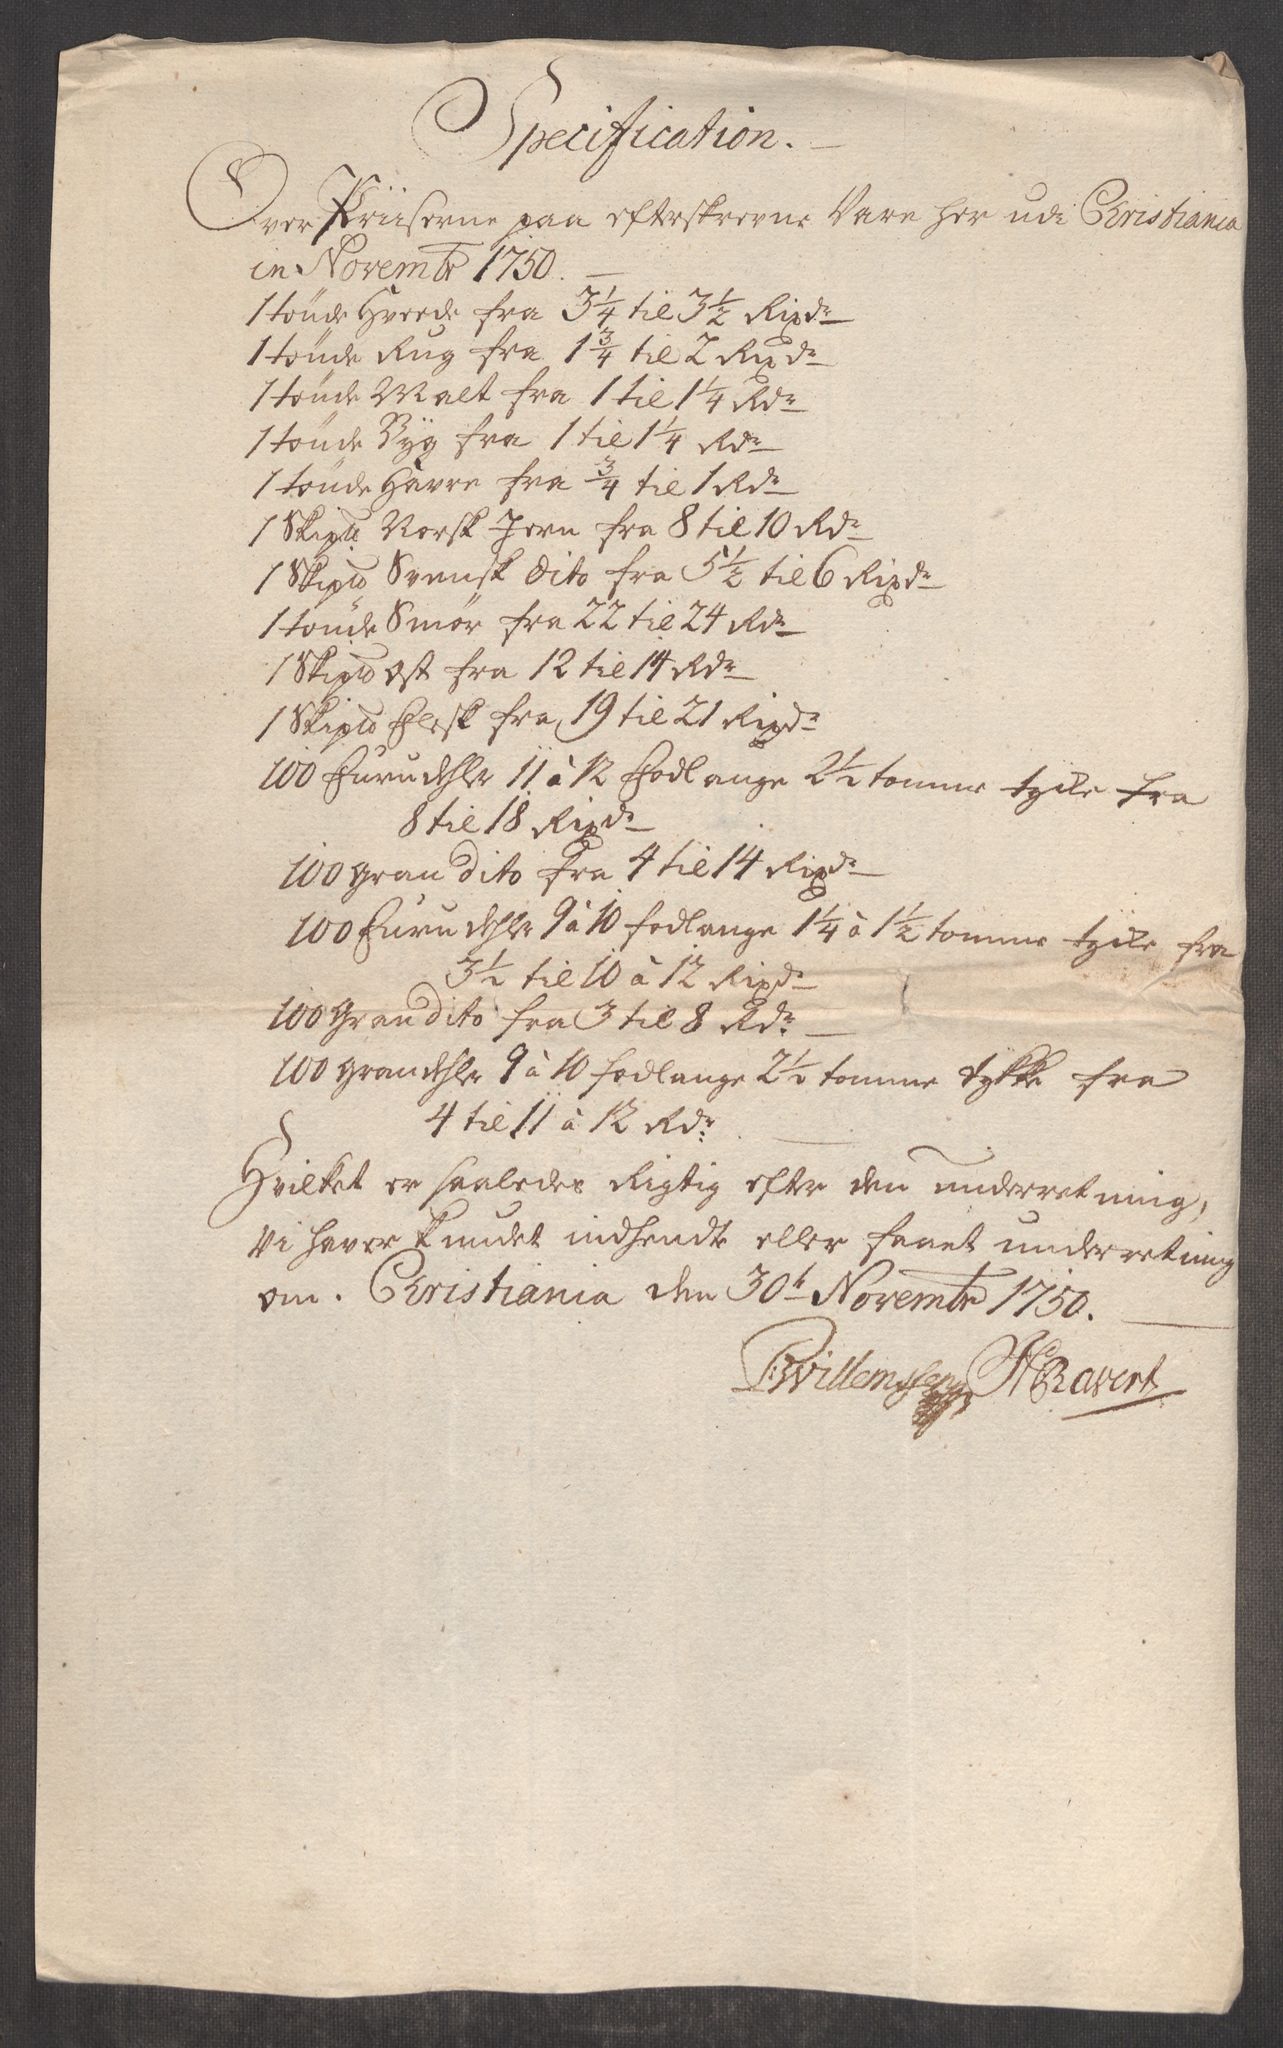 Specification.
Over Priiserne paa efterskrevne Vare her udi Christiania
in Novembr 1750.
1 tönde Hvede fra 3 1/4 til 3 1/2 Rixdr
1 tönde Rug fra 1 3/4 til 2 Rixdr
1 tönde Malt fra 1 til 1 1/4 Rdr
1 tönde Byg fra 1 til 1 1/4 Rdr
1 tönde Havre fra 3/4 til 1 Rdr
1 Skipd Norsk Jern fra 8 til 10 Rdr
1 Skipd Svensk dito fra 5 1/2 til 6 Rixdr
1 tönde Smör fra 22 til 24 Rdr
1 Skipd Ost fra 12 til 14 Rdr
1 Skipd Flesk fra 19 til 21 Rixdr
100 Furu dehler 11 à 12 Fodlange 2 1/2 tomme tycke fra
8 til 18 Rixdr
100 gran dito fra 4 til 14 Rixdr
100 Furu dehler 9 à 10 fodlange 1 1/4 à 1 1/2 tomme tycke fra
3 1/2 til 10 à 12 Rixdr
100 Gran dito fra 3 til 8 Rdr
100 gran dehler 9 à 10 fodlange 2 1/2 tomme tykke fra
4 til 11 à 12 Rdr
Hvilket er saaledes Rigtig efter den underretning,
vi haver kundet indhendte eller faaet underretning
om. Christiania den 30t Novembr 1750.
Willemssen H Ravert